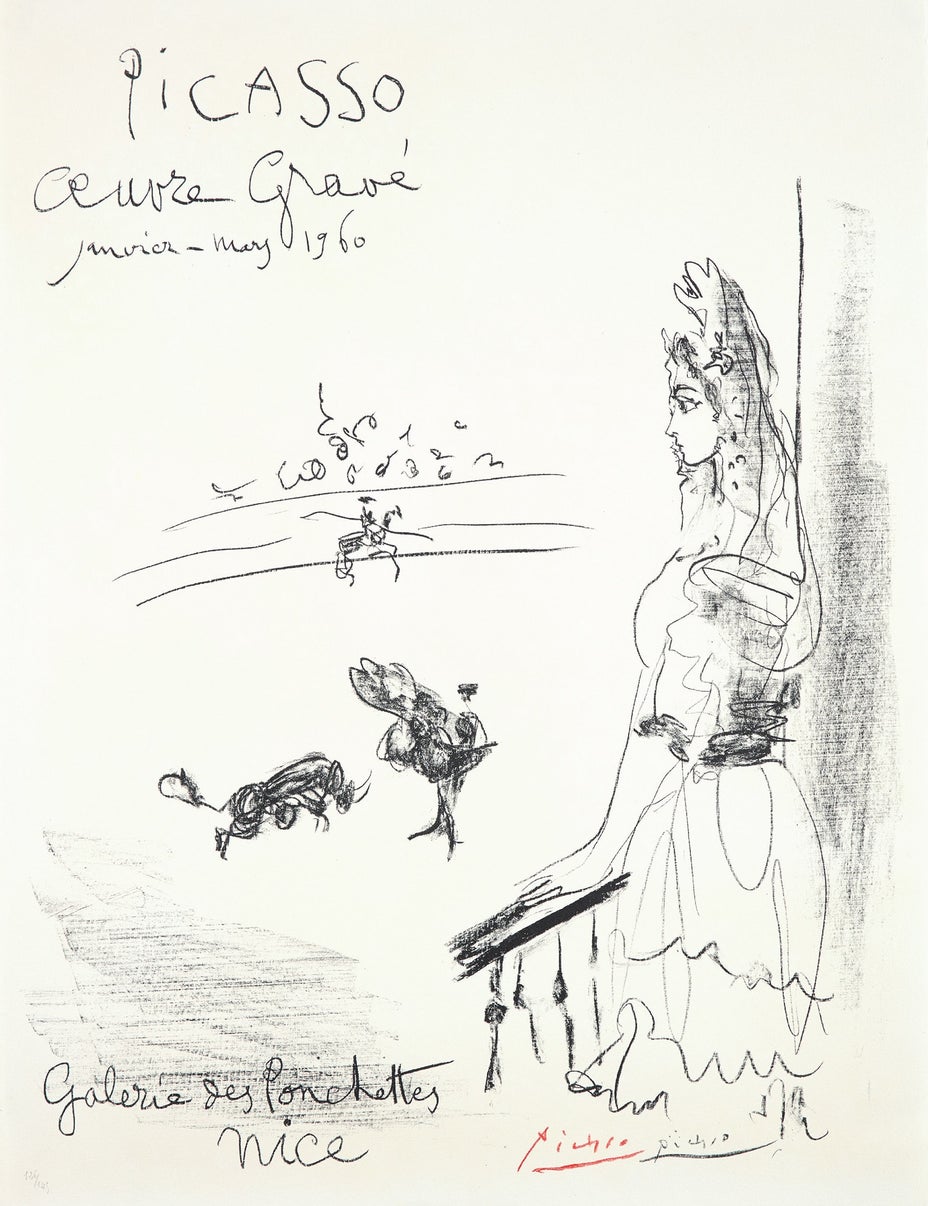 PiCASSO
Œuvre Gravé
janvier - mars 1960
Galerie des Ponchettes
Nice
Picasso Picasso